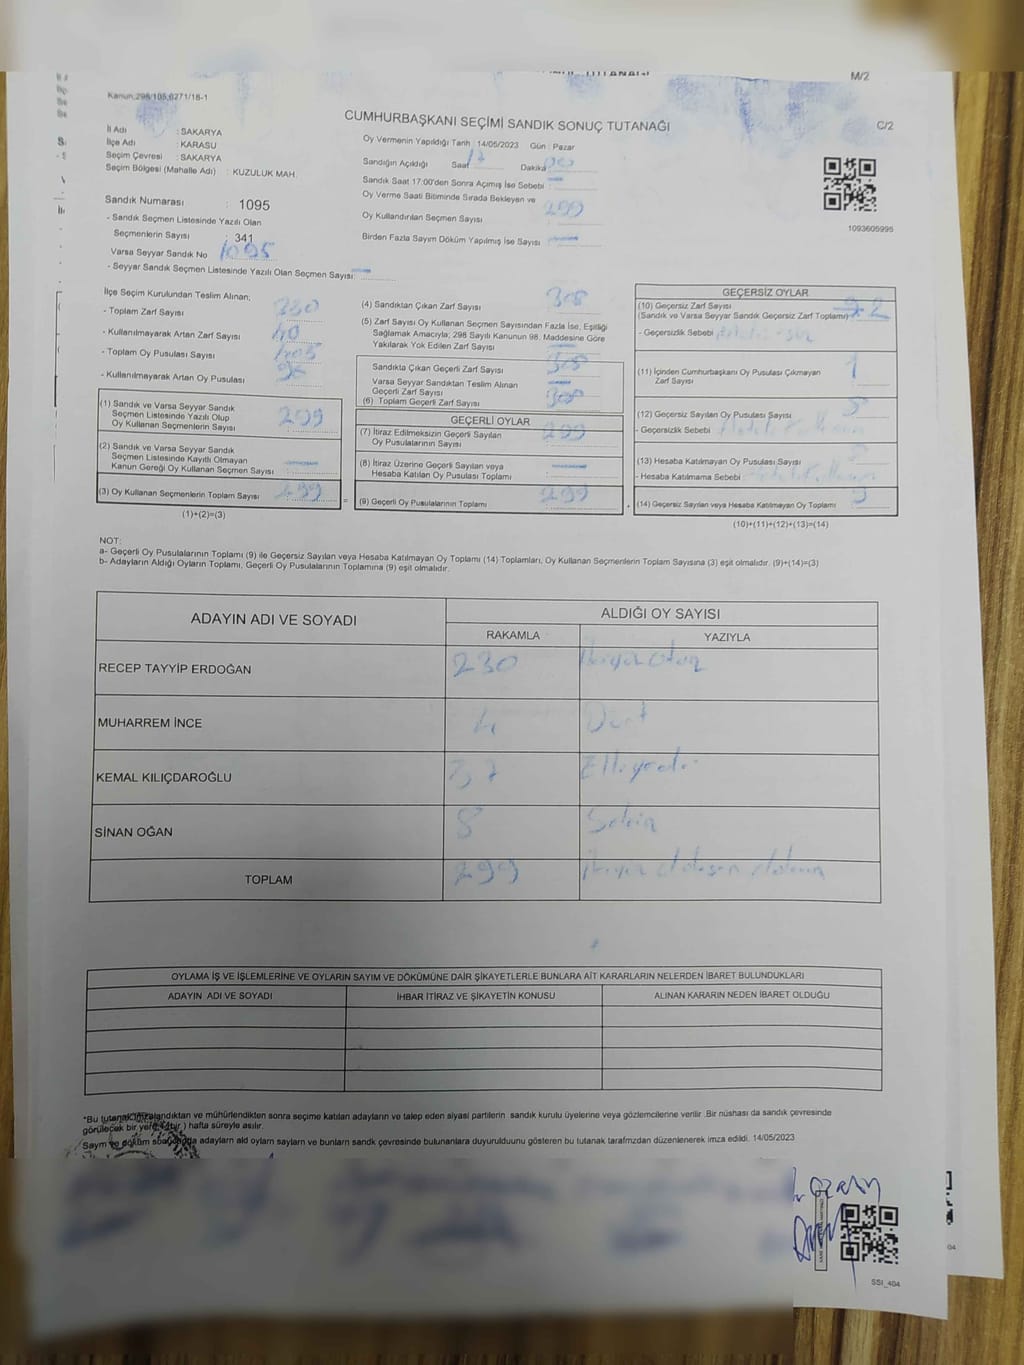 M/2
Kanun;298/105,6271/18-1
CUMHURBAŞKANI SEÇİMİ SANDIK SONUÇ TUTANAĞI
C/2
İl Adı : SAKARYA
İlçe Adı : KARASU
Seçim Çevresi : SAKARYA
Seçim Bölgesi (Mahalle Adı) : KUZULUK MAH.
Sandık Numarası : 1095
- Sandık Seçmen Listesinde Yazılı Olan
Seçmenlerin Sayısı : 341
Varsa Seyyar Sandık No 1095
- Seyyar Sandık Seçmen Listesinde Yazılı Olan Seçmen Sayısı:
Oy Vermenin Yapıldığı Tarih 14/05/2023 Gün : Pazar
Sandığın Açıldığı Saat 17 Dakika 00
Sandık Saat 17:00'den Sonra Açımış İse Sebebi :
Oy Verme Saati Bitiminde Sırada Bekleyen ve
Oy Kullandırılan Seçmen Sayısı 299
Birden Fazla Sayım Döküm Yapılmış İse Sayısı
1093605995
İlçe Seçim Kurulundan Teslim Alınan;
- Toplam Zarf Sayısı
- Kullanılmayarak Artan Zarf Sayısı 40
- Toplam Oy Pusulası Sayısı
- Kullanılmayarak Artan Oy Pusulası
(1) Sandık ve Varsa Seyyar Sandık
Seçmen Listesinde Yazılı Olup
Oy Kullanan Seçmenlerin Sayısı 299
(2) Sandık ve Varsa Seyyar Sandık
Seçmen Listesinde Kayıtlı Olmayan
Kanun Gereği Oy Kullanan Seçmen Sayısı
(3) Oy Kullanan Seçmenlerin Toplam Sayısı 299
(1)+(2)=(3)
(4) Sandıktan Çıkan Zarf Sayısı 308
(5) Zarf Sayısı Oy Kullanan Seçmen Sayısından Fazla İse, Eşitliği
Sağlamak Amacıyla; 298 Sayılı Kanunun 98. Maddesine Göre
Yakılarak Yok Edilen Zarf Sayısı
Sandıkta Çıkan Geçerli Zarf Sayısı 308
Varsa Seyyar Sandıktan Teslim Alınan
Geçerli Zarf Sayısı
(6) Toplam Geçerli Zarf Sayısı 308
GEÇERLİ OYLAR
(7) İtiraz Edilmeksizin Geçerli Sayılan
Oy Pusulalarının Sayısı 299
(8) İtiraz Üzerine Geçerli Sayılan veya
Hesaba Katılan Oy Pusulası Toplamı
=
(9) Geçerli Oy Pusulalarının Toplamı 299
GEÇERSİZ OYLAR
(10) Geçersiz Zarf Sayısı
(Sandık ve Varsa Seyyar Sandık Geçersiz Zarf Toplamı)
- Geçersizlik Sebebi
(11) İçinden Cumhurbaşkanı Oy Pusulası Çıkmayan
Zarf Sayısı 1
(12) Geçersiz Sayılan Oy Pusulası Sayısı
- Geçersizlik Sebebi
(13) Hesaba Katılmayan Oy Pusulası Sayısı
- Hesaba Katılmama Sebebi
(14) Geçersiz Sayılan veya Hesaba Katılmayan Oy Toplamı
(10)+(11)+(12)+(13)=(14)
NOT:
a- Geçerli Oy Pusulalarının Toplamı (9) ile Geçersiz Sayılan veya Hesaba Katılmayan Oy Toplamı (14) Toplamları, Oy Kullanan Seçmenlerin Toplam Sayısına (3) eşit olmalıdır. (9)+(14)=(3)
b- Adayların Aldığı Oyların Toplamı, Geçerli Oy Pusulalarının Toplamına (9) eşit olmalıdır.
ADAYIN ADI VE SOYADI ALDIĞI OY SAYISI
RAKAMLA YAZIYLA
RECEP TAYYİP ERDOĞAN 230 ikiyüz otuz
MUHARREM İNCE 4 Dört
KEMAL KILIÇDAROĞLU 57 Elliyedi
SİNAN OĞAN 8 Sekiz
TOPLAM 299
OYLAMA İŞ VE İŞLEMLERİNE VE OYLARIN SAYIM VE DÖKÜMÜNE DAİR ŞİKAYETLERLE BUNLARA AİT KARARLARIN NELERDEN İBARET BULUNDUKLARI
ADAYIN ADI VE SOYADI İHBAR İTİRAZ VE ŞİKAYETİN KONUSU ALINAN KARARIN NEDEN İBARET OLDUĞU
*Bu tutanak imzalandıktan ve mühürlendikten sonra seçime katılan adayların ve talep eden siyasi partilerin sandık kurulu üyelerine veya gözlemcilerine verilir .Bir nüshası da sandık çevresinde
görülecek bir yere ( bir ) hafta süreyle asılır.
Sayım ve döküm sonucunda adayların ald oylarn sayların ve bunların sandk çevresinde bulunanlara duyurulduunu gösteren bu tutanak tarafımzdan düzenlenerek imza edildi. 14/05/2023
SSI_404
04